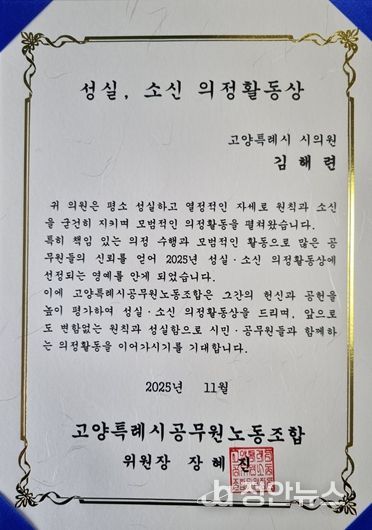 성실, 소신 의정활동상
고양특례시 시의원
김 해 련
귀 의원은 평소 성실하고 열정적인 자세로 원칙과 소신
을 굳건히 지키며 모범적인 의정활동을 펼쳐왔습니다.
특히 책임 있는 의정 수행과 모범적인 활동으로 많은 공
무원들의 신뢰를 얻어 2025년 성실·소신 의정활동상에
선정되는 영예를 안게 되었습니다.
이에 고양특례시공무원노동조합은 그간의 헌신과 공헌을
높이 평가하여 성실·소신 의정활동상을 드리며, 앞으로
도 변함없는 원칙과 성실함으로 시민·공무원들과 함께하
는 의정활동을 이어가시기를 기대합니다.
2025년 11월
고양특례시공무원노동조합
위원장 장 혜 진
정안뉴스